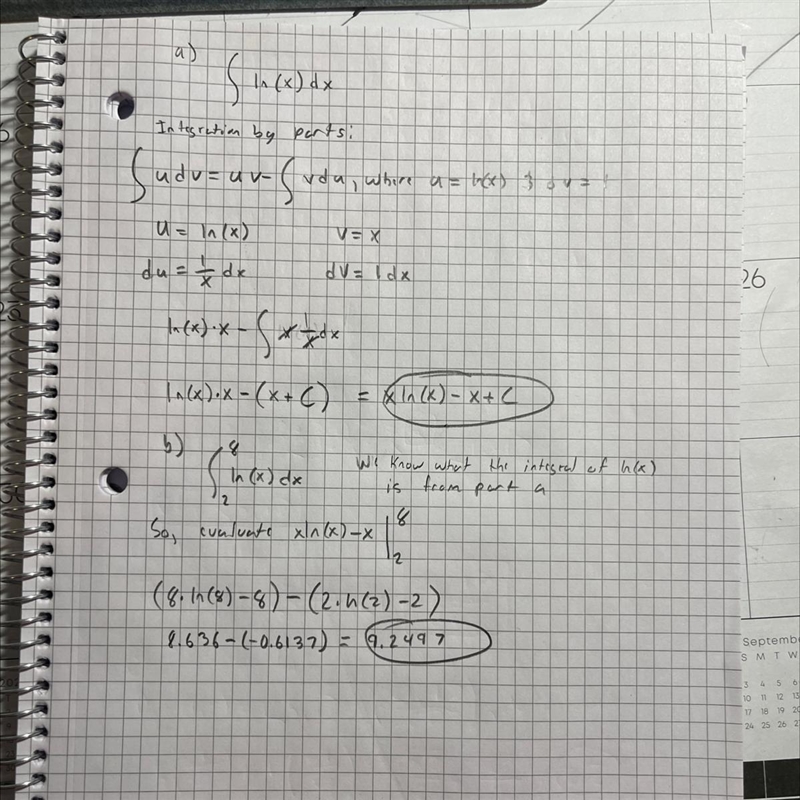 a)
∫ ln(x) dx
Integration by parts:
∫ u dv = uv - ∫ v du, where u = ln(x) & dv = 1
u = ln(x) v = x
du = 1/x dx dv = 1 dx
ln(x)·x - ∫ x 1/x dx
ln(x)·x - (x + C) = x ln(x) - x + C
b) ∫₂⁸ ln(x) dx We know what the integral of ln(x)
is from part a
So, evaluate x ln(x) - x |₂⁸
(8·ln(8) - 8) - (2·ln(2) - 2)
8.636 - (-0.6137) = 9.2497
26
Septemb
S M T W
3 4 5 6
10 11 12 13
17 18 19 20
24 25 26 27